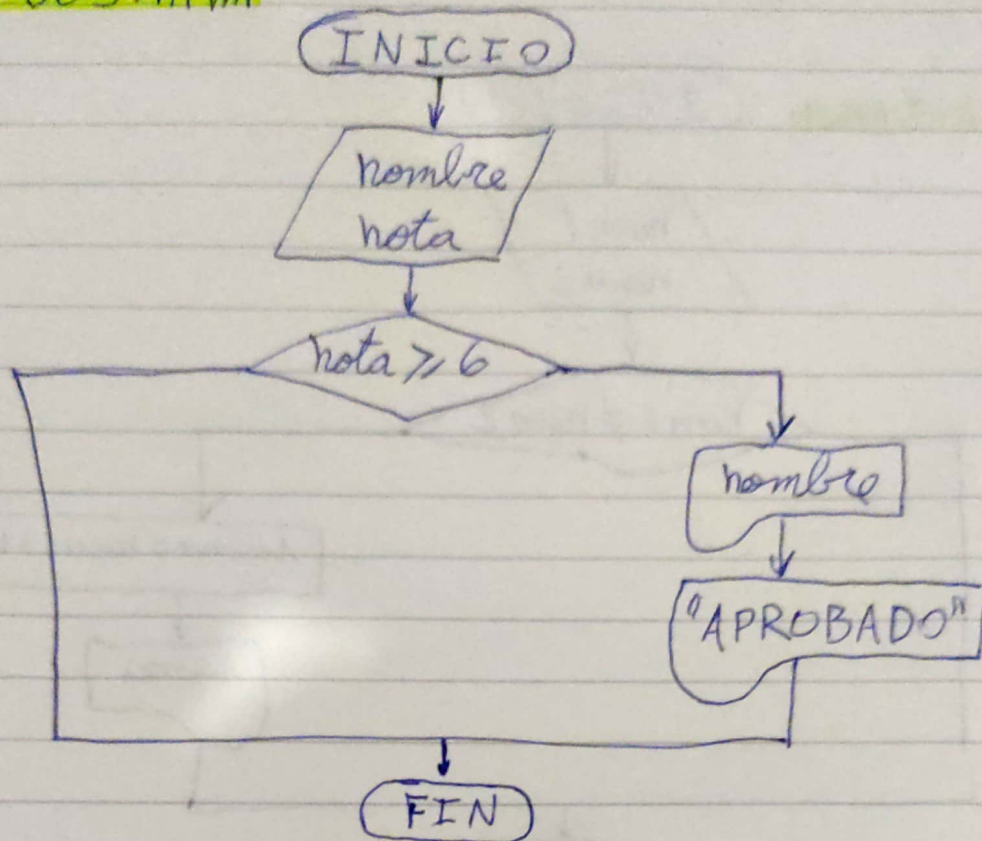 INICIO
nombre
nota
nota ≥ 6
nombre
"APROBADO"
FIN